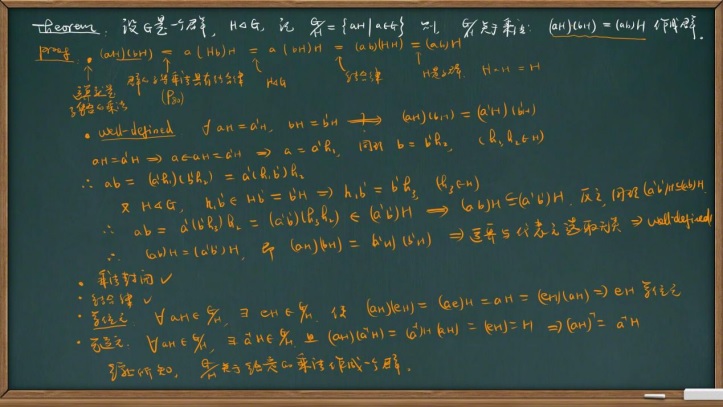 Theorem: 设G是一个群, H◁G, 记 G/H = {aH | a∈G} 则 G/H 关于乘法: (aH)(bH) = (ab)H 作成群.
proof: • (aH)(bH) = a(Hb)H = a(bH)H = (ab)(HH) = (ab)H
结合律 H◁G 结合律 H·H = H
• well-defined ∀ aH = a'H, bH = b'H ⟹ (aH)(bH) = (a'H)(b'H)
aH = a'H ⟹ a∈aH = a'H ⟹ a = a'h₁, 同理 b = b'h₂, (h₁,h₂∈H)
∴ ab = (a'h₁)(b'h₂) = a'(h₁b')h₂
又 H◁G, h₁b' ∈ Hb' = b'H ⟹ h₁b' = b'h₃ (h₃∈H)
∴ ab = a'(b'h₃)h₂ = (a'b')(h₃h₂) ∈ (a'b')H ⟹ (ab)H ⊆ (a'b')H. 反之, 同理 (a'b')H ⊆ (ab)H.
∴ (ab)H = (a'b')H, 即 (aH)(bH) = (a'H)(b'H) ⟹ 运算与代表元选取无关 ⟹ well-defined
• 乘法封闭 ✓
• 结合律 ✓
• 单位元: ∀ aH∈G/H, ∃ eH∈G/H, 使 (aH)(eH) = (ae)H = aH = (eH)(aH) ⟹ eH 单位元
• 逆元: ∀ aH∈G/H, ∃ a⁻¹H∈G/H, 且 (aH)(a⁻¹H) = (eH) = H ⟹ (aH)⁻¹ = a⁻¹H
综上所知, G/H 关于给定的乘法作成一个群.